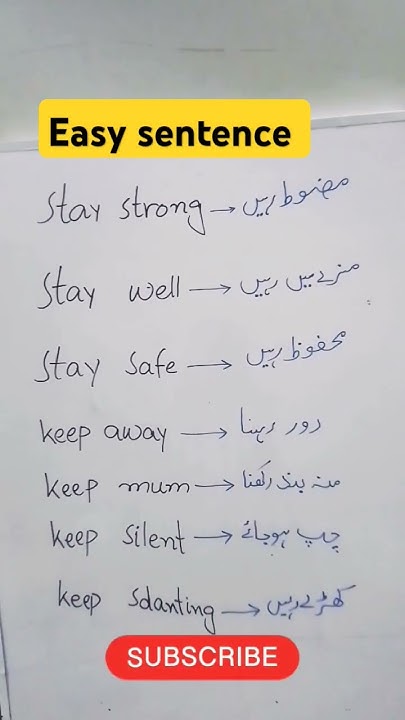 Easy sentence
Stay strong → مضبوط رہیں
Stay well → مزے میں رہیں
Stay safe → محفوظ رہیں
keep away → دور رہنا
keep mum → منہ بند رکھنا
keep silent → چپ ہو جائے
keep sdanting → کھڑے رہیں
SUBSCRIBE